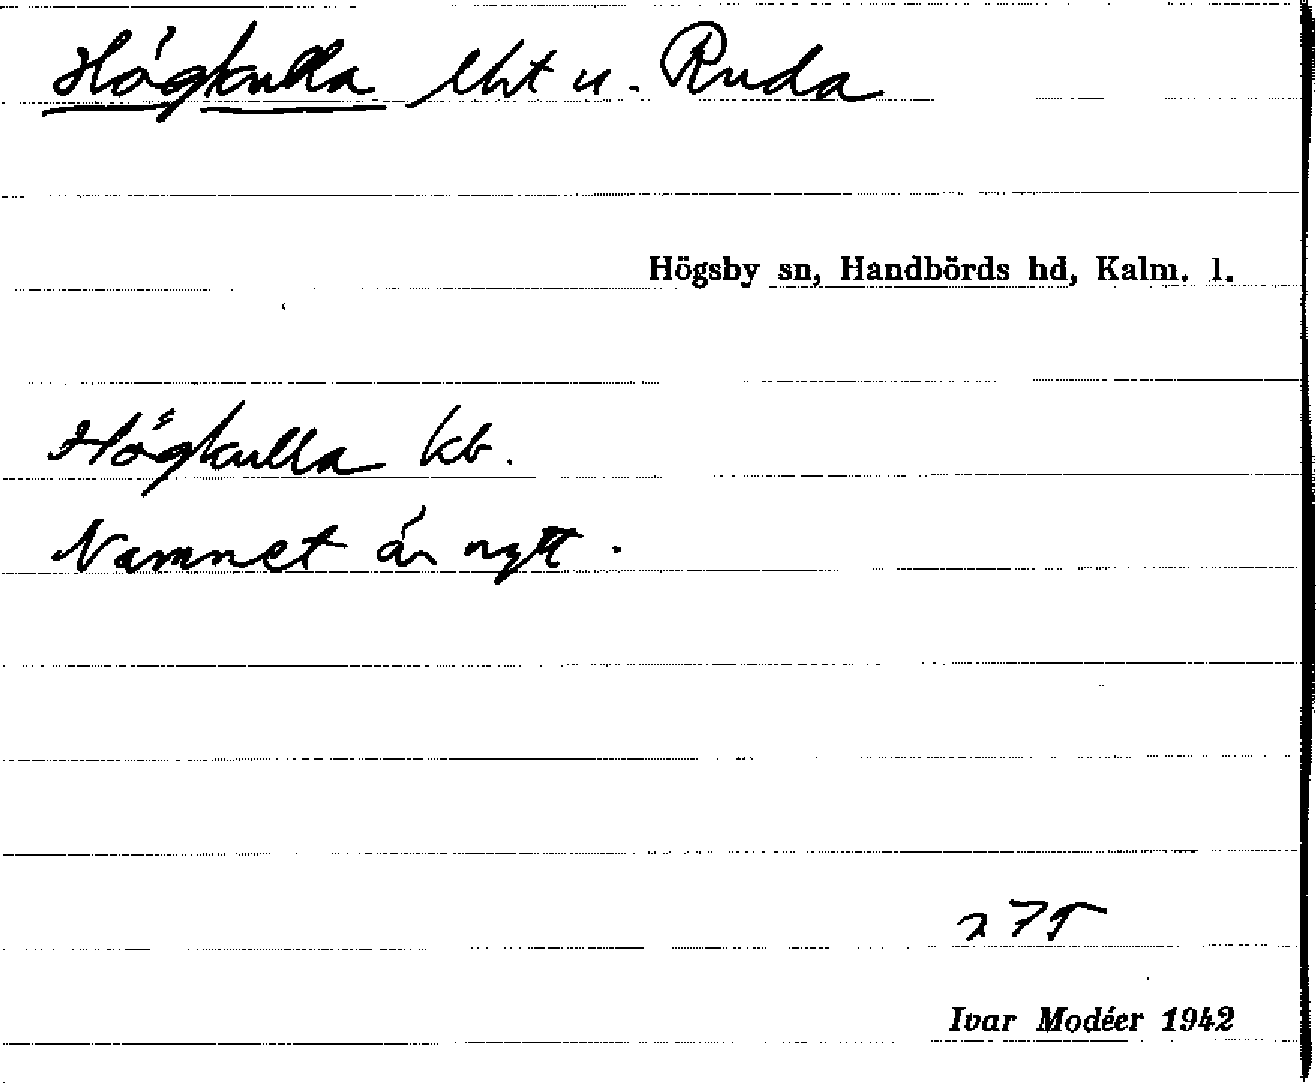 Högkulla lht u. Ruda
Högsby sn, Handbörds hd, Kalm. l.
Högkulla kb.
Namnet är nytt.
275
Ivar Modéer 1942